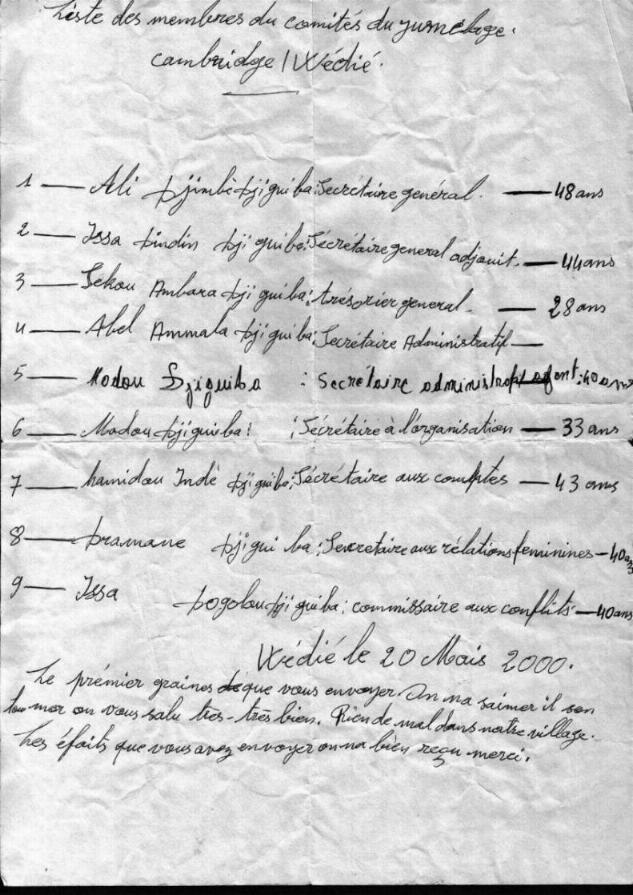 Liste des membres du comités du jumelage.
Cambridge / Wédié.
1 — Ali Djimbé Djiguiba : Secrétaire général. — 48 ans
2 — Issa Dindin Djiguiba : Sécrétaire general adjouit. — 44 ans
3 — Sekou Ambara Djiguiba : trésorier general. — 28 ans
4 — Abel Ammala Djiguiba : Secrétaire Administratif —
5 — Modou Djiguiba : Secrétaire administratif : 40 ans
6 — Madou Djiguiba : Sécrétaire à l'organisation — 33 ans
7 — hamidou Indè Djiguiba : Sécrétaire aux comptes — 43 ans
8 — Dramane Djiguiba : Secretaire aux rélations feminines — 40 ans
9 — Issa Dogolou Djiguiba : commissaire aux conflits — 40 ans
Wédié le 20 Mais 2000.
Le prémier graines que vous envoyer On na saimer il son
tou mor on vous salu tres-très bien. Rien de mal dans notre village.
Les éfaits que vous avez envoyer on na bien reçu merci.